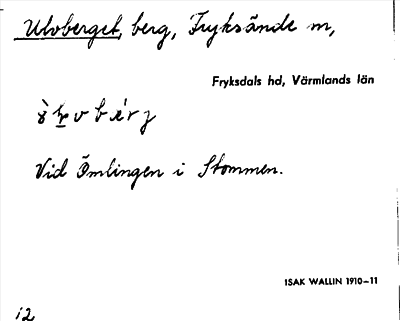 Ulvberget, berg, Fryksände sn,
Fryksdals hd, Värmlands län
Vid Ömlingen i Stommen.
ISAK WALLIN 1910–11
12